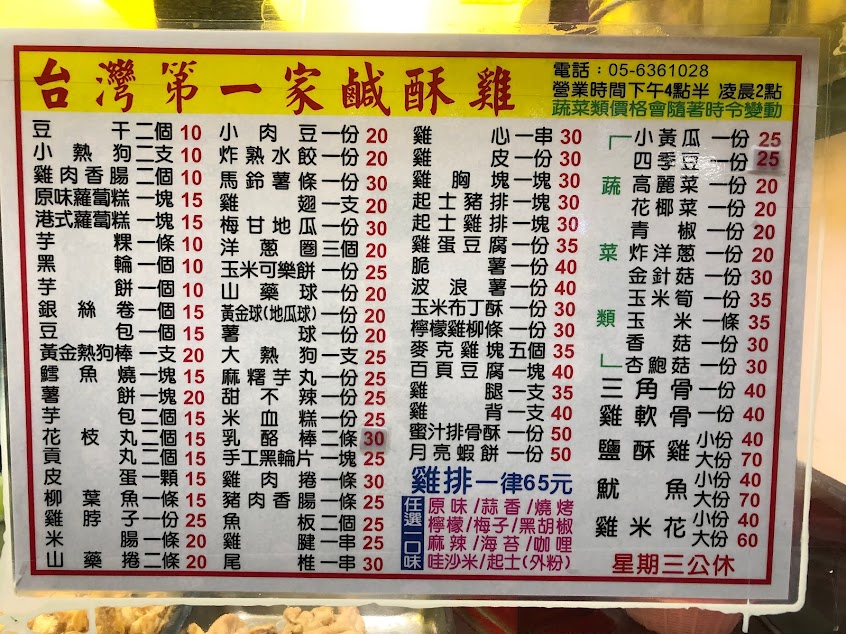 台灣第一家鹹酥雞
電話：05-6361028
營業時間下午4點半 凌晨2點
蔬菜類價格會隨著時令變動
豆干二個 10
小熱狗二支 10
雞肉香腸二個 10
原味蘿蔔糕一塊 15
港式蘿蔔糕一塊 15
芋粿一條 10
黑輪一個 10
芋餅一個 10
銀絲卷一個 15
豆包一個 15
黃金熱狗棒一支 20
鱈魚燒一塊 15
薯餅一塊 20
芋包二個 15
花枝丸二個 15
貢丸二個 15
皮蛋一顆 15
柳葉魚一條 15
雞脖子一份 25
米腸一條 20
山藥捲二條 20
小肉豆一份 20
炸熱水餃一份 20
馬鈴薯條一份 30
雞翅一支 20
梅甘地瓜一份 30
洋蔥圈三個 20
玉米可樂餅一份 25
山藥球一份 20
黃金球(地瓜球)一份 20
薯球一份 20
大熱狗一支 25
麻糬芋丸一份 25
甜不辣一份 25
米血糕一份 25
乳酪棒二條 30
手工黑輪片一塊 25
雞肉捲一條 30
豬肉香腸一條 25
魚板二個 25
雞腱一串 25
尾椎一串 30
雞心一串 30
雞皮一份 30
雞胸塊一塊 30
起士豬排一塊 30
起士雞排一塊 30
雞蛋豆腐一份 35
脆薯一份 40
波浪薯一份 40
玉米布丁酥一份 30
檸檬雞柳條一份 30
麥克雞塊五個 35
百頁豆腐一塊 40
雞腿一支 35
雞背一支 40
蜜汁排骨酥一份 50
月亮蝦餅一份 50
雞排一律65元
任選一口味
原味/蒜香/燒烤
檸檬/梅子/黑胡椒
麻辣/海苔/咖哩
哇沙米/起士(外粉)
「蔬菜類」
小黃瓜一份 25
四季豆一份 25
高麗菜一份 20
花椰菜一份 20
青椒一份 20
炸洋蔥一份 20
金針菇一份 30
玉米筍一份 35
玉米一條 35
香菇一份 30
杏鮑菇一份 30
三角骨一份 40
雞軟骨一份 40
鹽酥雞 小份 40
大份 70
魷魚 小份 40
大份 70
雞米花 小份 40
大份 60
星期三公休